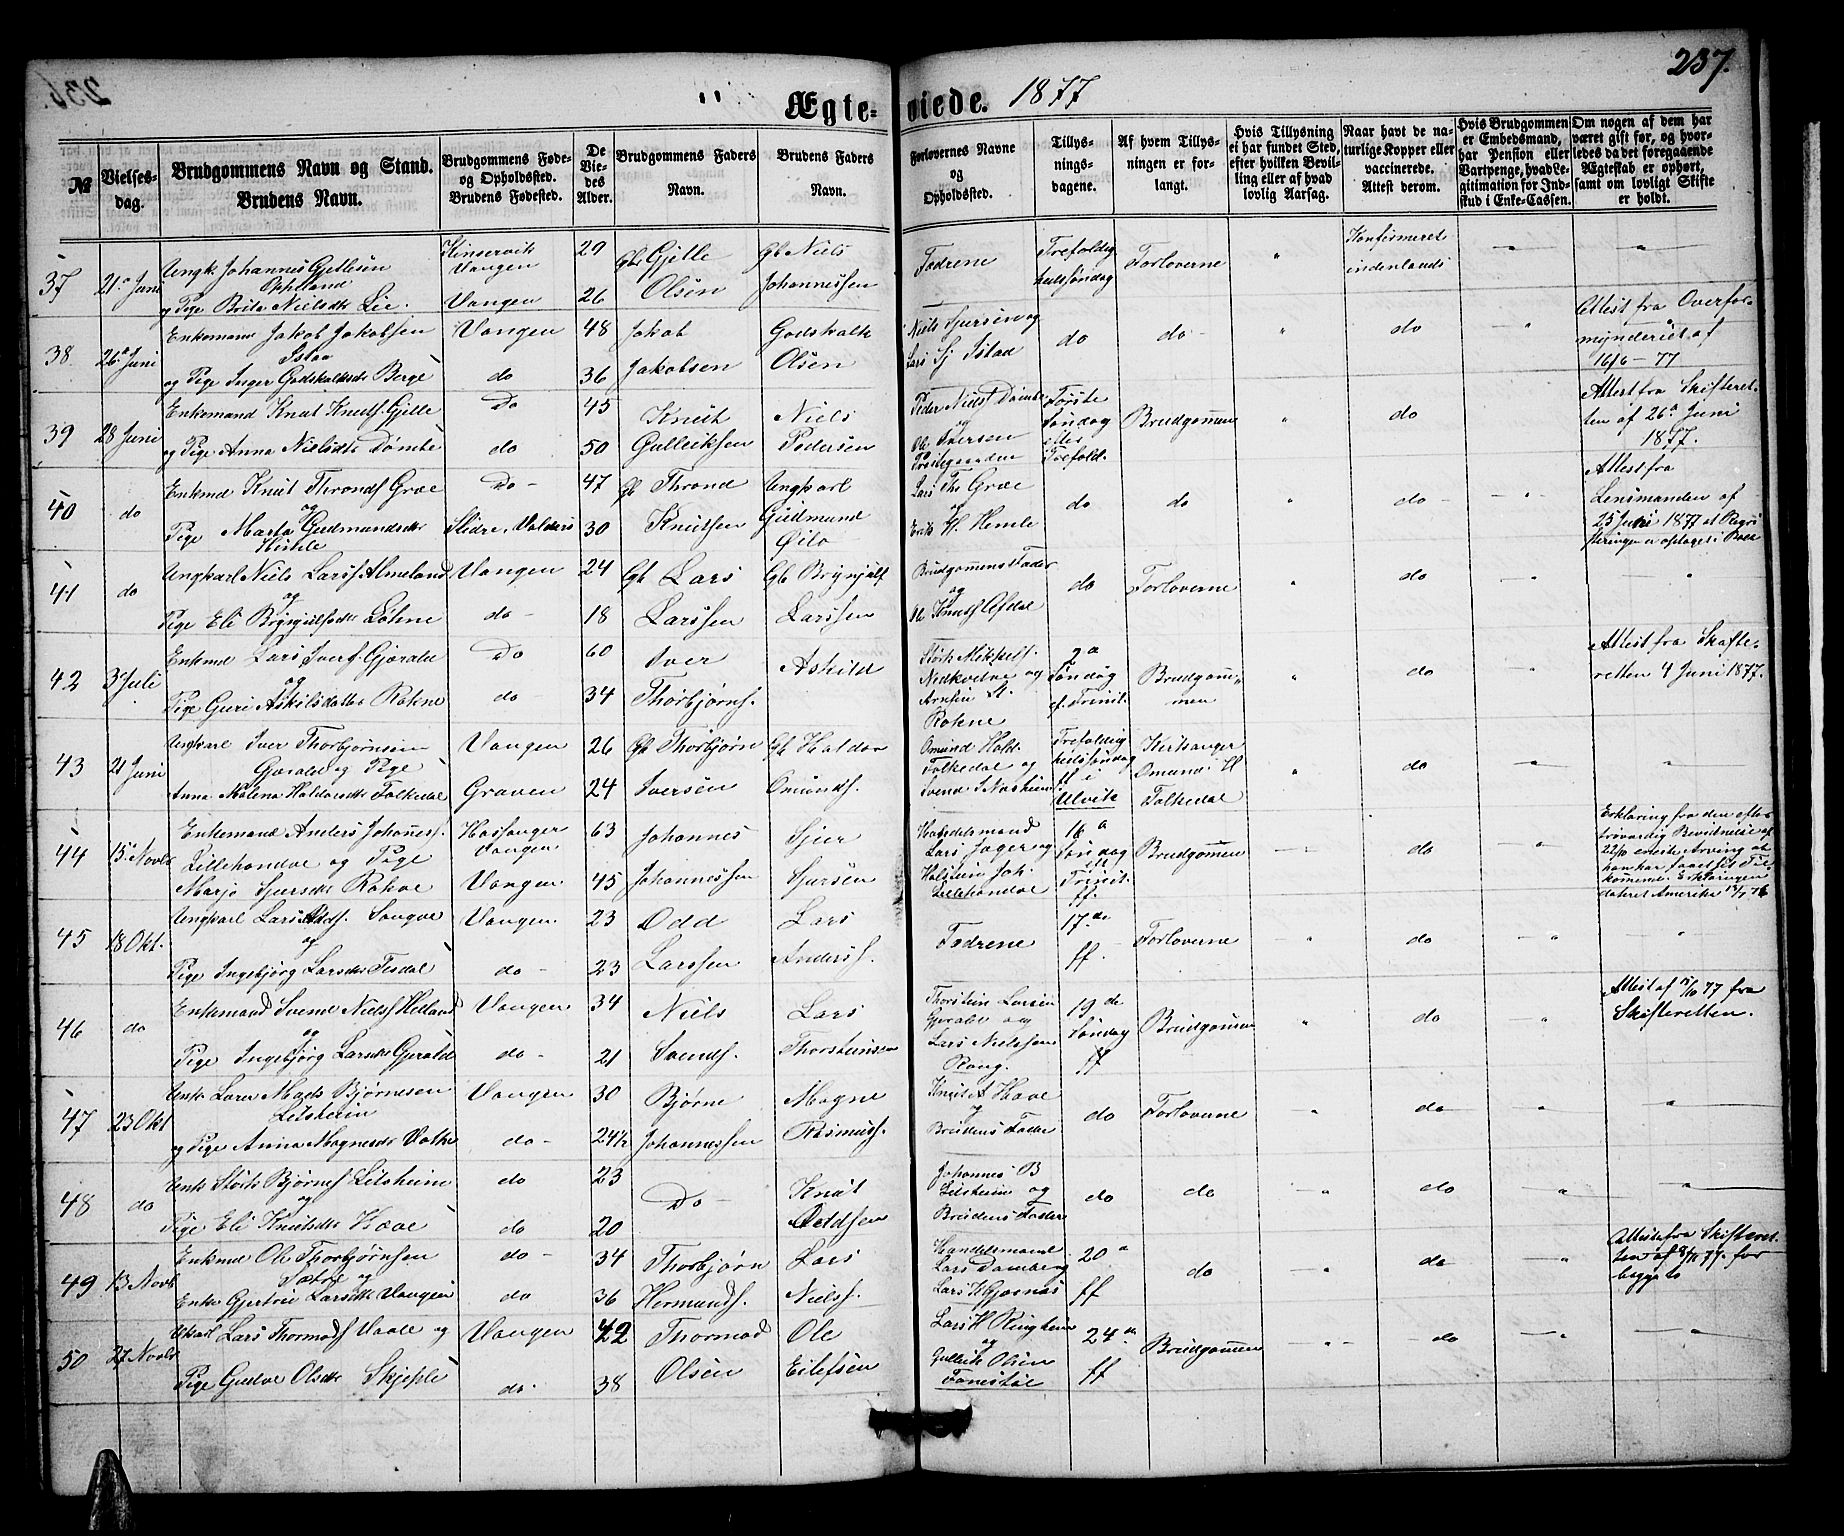 237.
Ægte=viede. 1877
№
Vielses-dag.
Brudgommens Navn og Stand.
Brudens Navn.
Brudgommens Føde-
og Opholdssted.
Brudens Fødested.
De
Vie-
des
Alder.
Brudgommens Faders
Navn.
Brudens Faders
Navn.
Forlovernes Navne
og
Opholdssted.
Tillys-
nings-
dagene.
Af hvem Tillys-
ningen er for-
langt.
Hvis Tillysning
ei har fundet Sted,
efter hvilken Bevil-
ling eller af hvad
lovlig Aarsag.
Naar havt de na-
turlige Kopper eller
vaccinerede.
Attest derom.
Hvis Brudgommen
er Embedsmand,
har Pension eller
Vartpenge, hvad Le-
gitimation for Ind-
skud i Enke-Cassen.
Om nogen af dem har
været gift før, og hvor-
ledes da det foregaaende
Ægteskab er ophørt,
samt om lovligt Skifte
er holdt.
37 21 Juni Ungk Johannes Gjellesen
og Pige Brita Nielsdtr Lie.
Kinservik
Vangen
Vangen
29
26
Gbr Gjelle
Olsen
Gb Niels
Johannessen
Fædrene
Trefoldig
hedssøndag
Forloverne
Konfirmeret
indenlands
38 26 Juni Enkemand Jakob Jakobsen
Istaa
og Pige Inger Godskalksdtr Berge
Vangen
do
48
36
Jakob
Jakobsen
Godskalk
Olsen
Niels Sjursen og
Lars Sj Istad
do
do
do
Attest fra Overfor-
mynderiet af
16/6 - 77
39 28 Juni Enkemand Knut Knuts. Gjelle
og Pige Anna Nielsdtr Dømbe
Do
do
45
50
Knut
Gulleiksen
Niels
Pedersen
Peder Niels Dømbe
og
Iversen
Første
Søndag
efter
Trefold.
Brudgommen
do
Attest fra Skifteret-
ten af 26 Juni
1877.
40 do Enkmd Knut Thronds Græ
og
Pige Marta Gudmundsdtr
Do
Slidre, Valders
47
30
Gb Thrond
Knutsen
Ungkarl
Gudmund
Lars Ths Græ
og
do
do
do
Attest fra
Lensmanden af
25 Juni 1877
41 do Ungkarl Niels Larss Almeland
og
Pige Eli Brynjulfsdtr Løhne
Vangen
do
24
18
Gb Lars
Larssen
Gb Brynjulf
Larssen
Brudgommens Fader
og
Knuts Afdal
do
Forloverne
do
42 3 Juli Enkmd Lars Ivers. Gjerald
og
Pige Guri Askilsdatter Rokne
Do
do
60
34
Iver
Thorbjørns.
Askild
Størk Mikkels.
Nedkvitne og
Rokne
2a
Søndag
ef. Trinit.
Brudgom-
men
do
Attest fra Skifte-
retten 4 Juni 1877.
43 21 Juni Ungkarl Iver Thorbjørnsen
Gjerald og Pige
Anna Malena Haldorsdtr Folkedal
Vangen
Graven
26
24
Gb Thorbjørn
Iversen
Gb Haldor
Omunds.
Omund Hald.
Folkedal og
Trefoldig
hedssøndag
i
Ulvik
Kirksanger
Omund H
Folkedal
do
44 15 Novbr Enkemand Anders Johanness.
Lillehandae og Pige
Marjo Sjursdtr Rokne
Vangen
Vangen
63
45
Johannes
Johannessen
Sjur
Sjursen
Handelsmand
Lars Jager og
Holstein Joh.
Lillehandae
16a
Søndag
eft
Trinit.
ff.
Brudgommen
do
Erklæring fra den efter
45 18 Okt. Ungkarl Lars Odds. Sonve
og
Pige Ingebjørg Larsdtr Tesdal
Vangen
do
23
23
Odd
Larssen
Lars
Anderss.
Fædrene
17de
ff
Forloverne
do
46 do Enkemand Svend Niels Helland
og
Pige Ingebjørg Larsdtr Gjerald
Vangen
do
34
21
Niels
Svends.
Lars
Thorsteinsen
Thorstein Larsen
Gjerald og
Lars Nielssen
Rong.
19de
Søndag
ff
Brudgommen
do
Attest af 15/10 77 fra
Skifteretten.
47 23 Okt Mads Bjørnesen
Litsheim
og Pige Anna Magnesdtr Vathe
Vangen
do
30
24½
Bjørne
Johannessen
Magne
Rasmuss.
Knut A Have
og
Brudens Fader
do
Forloverne
do
48 do Ungk Størk Bjørnes Litsheim
og
Pige Eli Knutsdtr Hæve
do
do
23
20
Do
Knut
Oddsen
Johannes B
Litsheim og
Brudens Fader
do
do
do
49 13 Novb Enkmd Ole Thorbjørnsen
Sætre og
Enke Gjertrui Larsdtr Vangen
do
do
34
36
Thorbjørn
Hermunds.
Lars
Niels.
Handelsmand
Lars Damberg
Lars K Gjernæs
20a
ff
do
do
Attest fra Skifteret-
ten af 8/11 77. for
begge to
50 27 Novbr Ukarl Lars Thormods Vaale og
Pige Gudve Olsdtr Skjeple
Vangen
do.
42
38
Thormod
Olsen
Ole
Eilefsen
Lars H Ringheim
og
Gulleik Olsen
24de
ff
Brudgommen
do